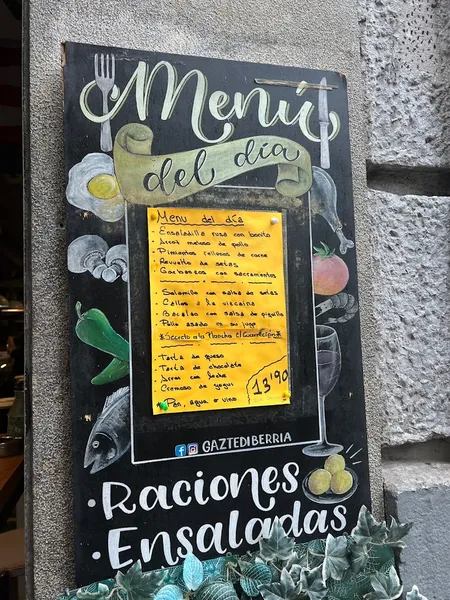 Menú
del día
Menu del día
· Ensaladilla rusa con bonito
· Arroz meloso de pollo
· Pimientos rellenos de carne
· Revuelto de setas
· Garbanzos con sacramentos
· Solomillo con salsa de setas
· Callos a la vizcaina
· Bacalao con salsa de piquillo
· Pollo asado en su jugo
*Secreto a la Plancha c/
· Tarta de queso
· Tarta de chocolate
· Arroz con leche
· Cremoso de yogur
13'90
* Pan, agua o vino
GAZTEDIBERRIA
·Raciones
·Ensaladas